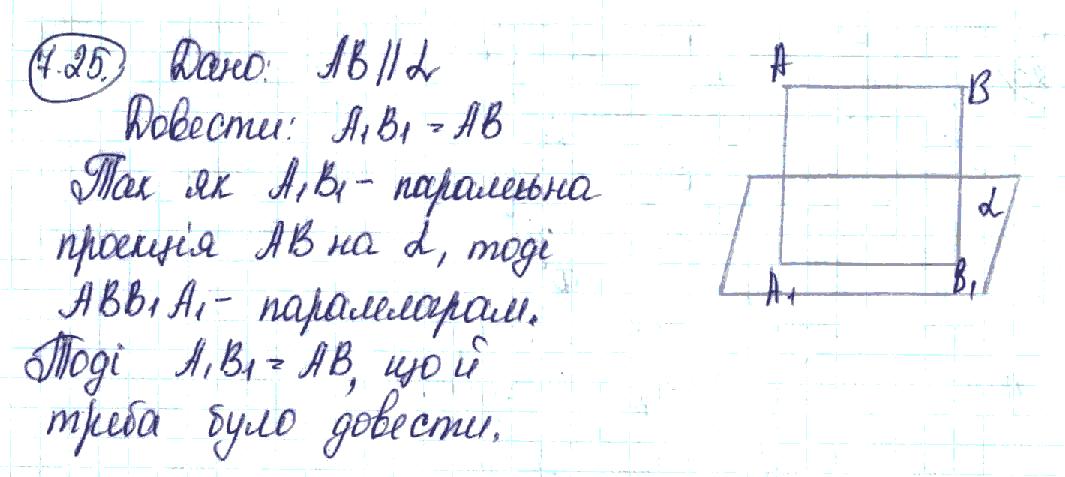 7.25. Дано: AB || α
Довести: A₁B₁ = AB
Так як A₁B₁ - паралельна
проєкція AB на α, тоді
ABB₁A₁ - паралелограм.
Тоді A₁B₁ = AB, що й
треба було довести.
A
B
α
A₁
B₁